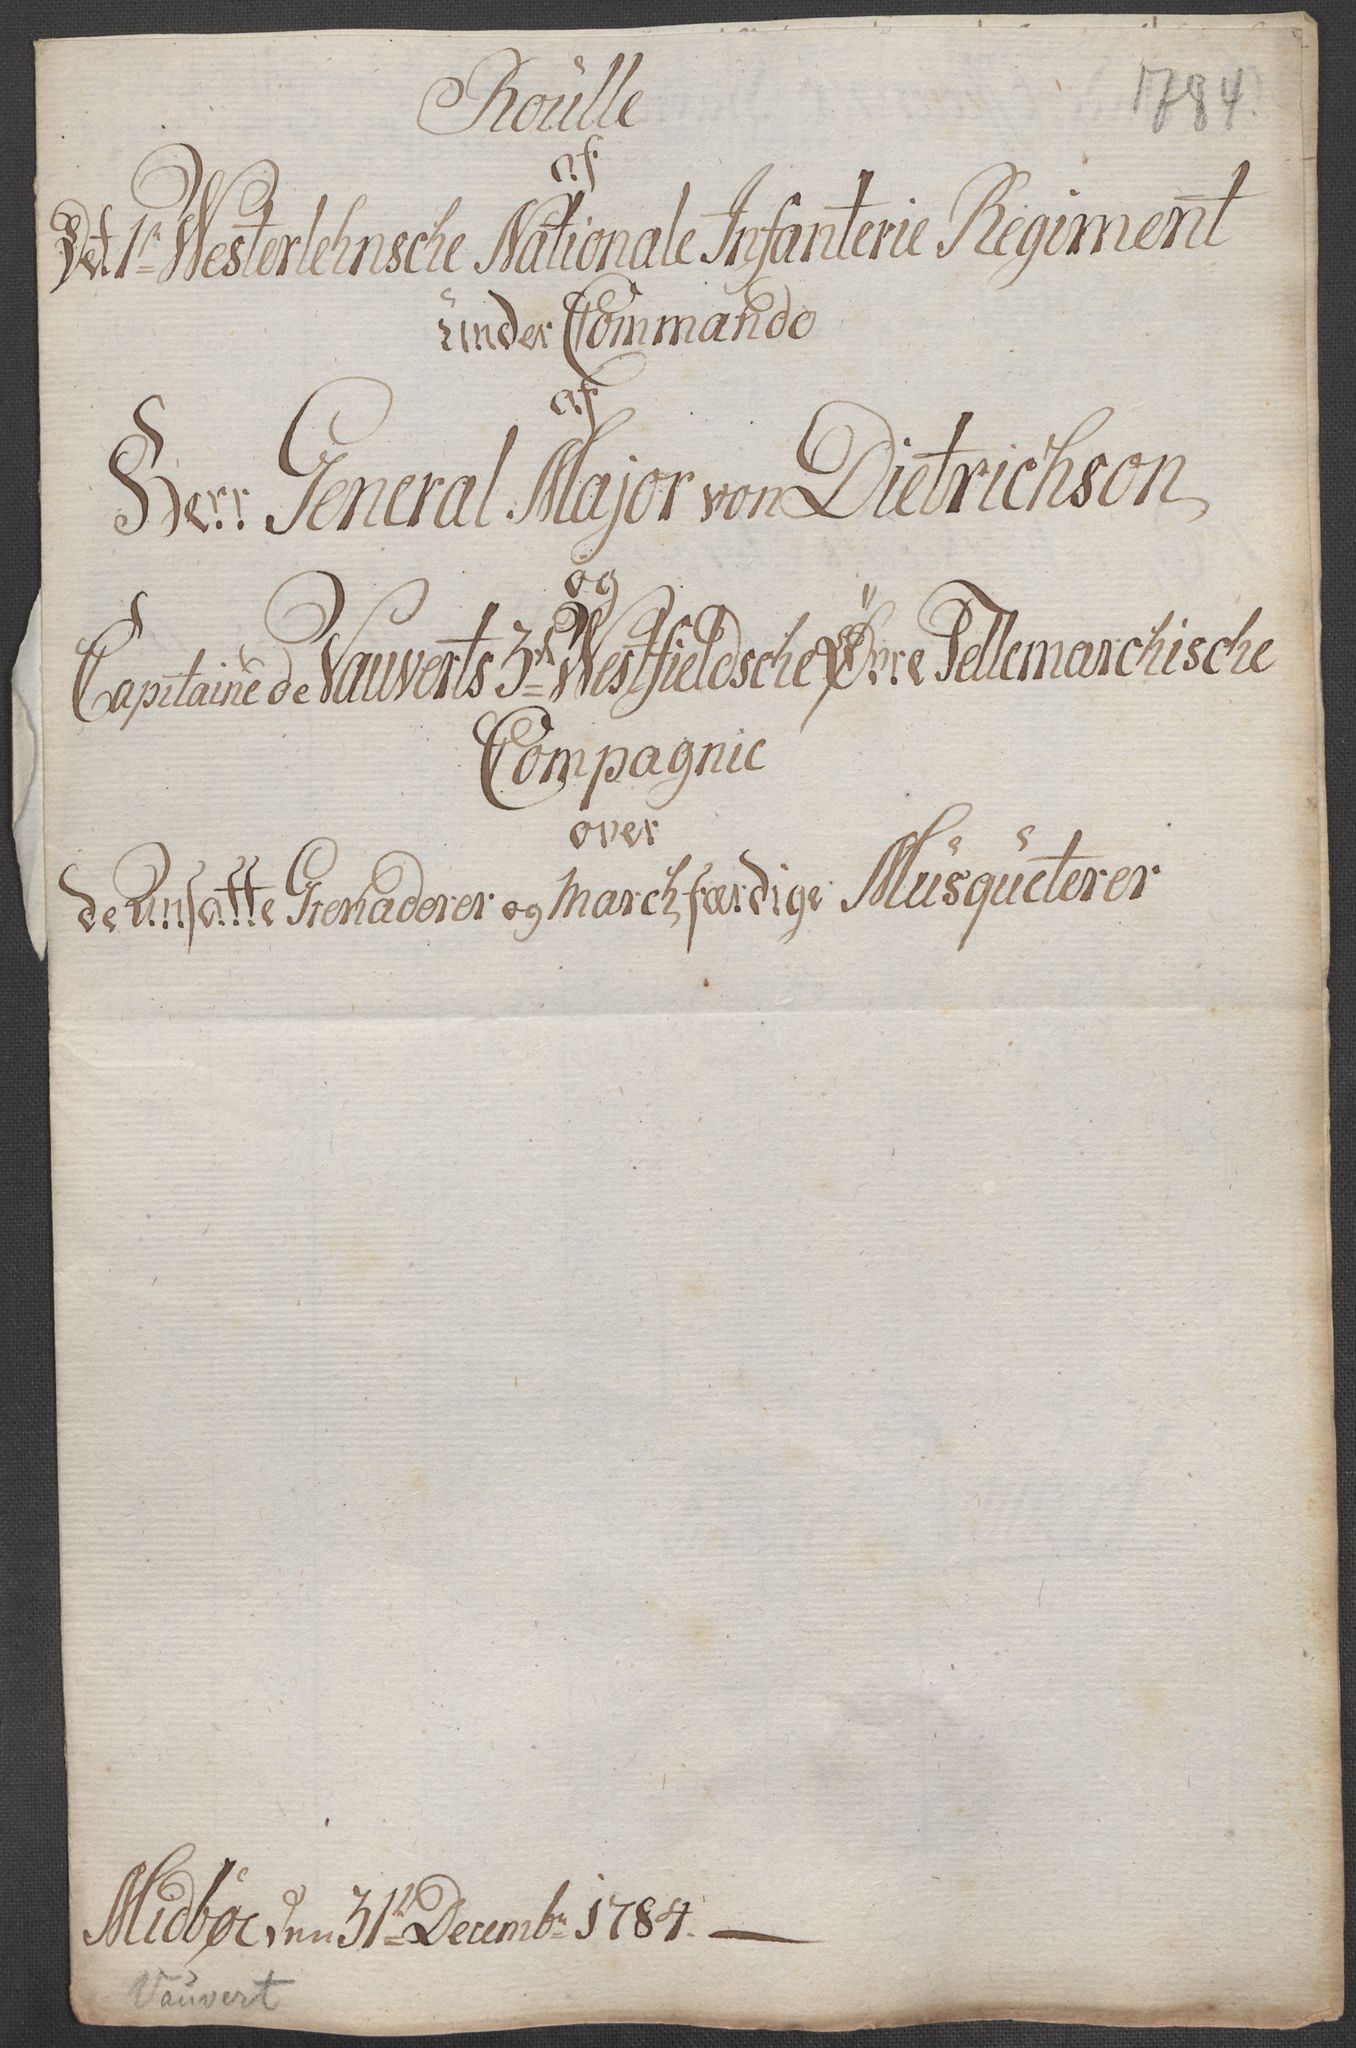 1784.
Roülle
af
Det 1te Westerlehnsche Nationale Infanterie Regiment
ünder Commando
af
Herr General Major von Dietrichson
og
Capitaine de Vauverts 3de Westfieldsche Øvre Tellemarchische
Compagnie
over
de Ansatte Grenaderer og March færdige Müsqüeterer
Midbøe den 31te Decembr 1784.
Vauvert